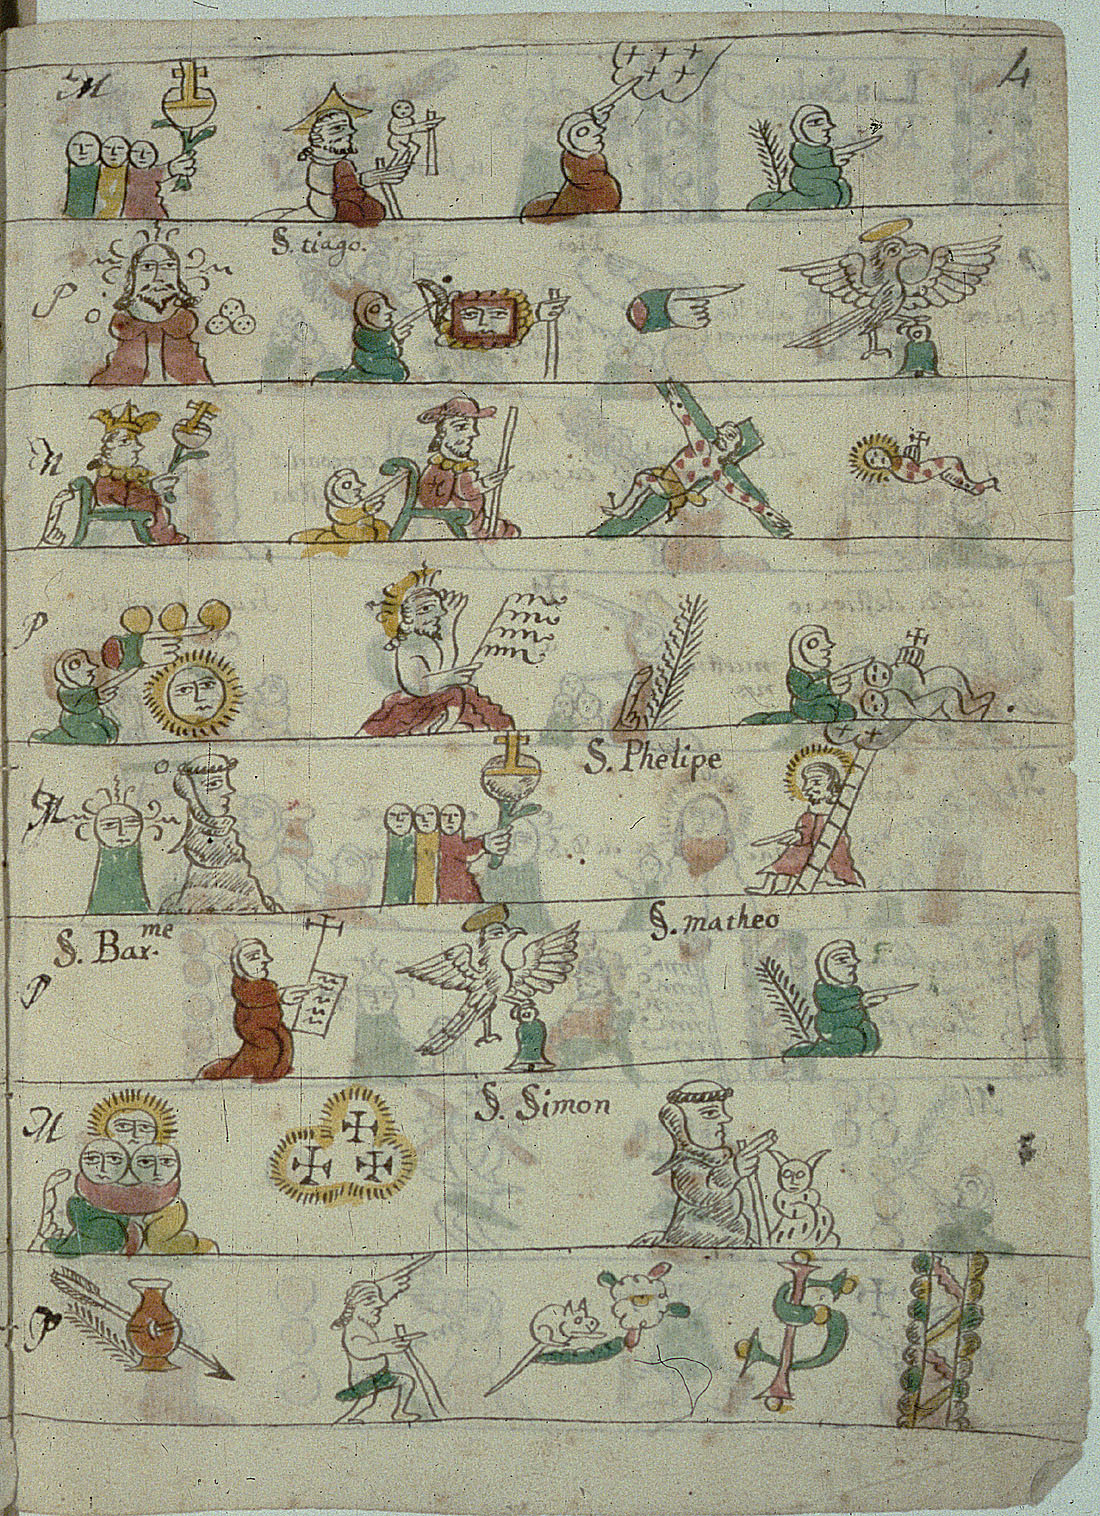 M
4
S. tiago.
P
M
P
S. Phelipe
M
S. Bar.me
S. matheo
P
M
S. Simon
P